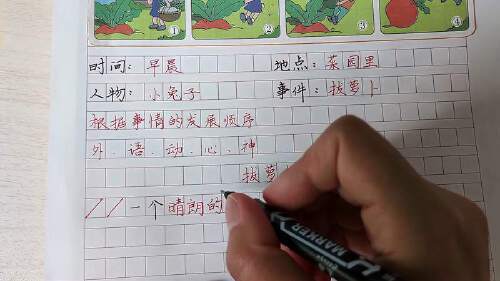 ① ② ③ ④
时间：早晨 地点：菜园里
人物：小兔子 事件：拔萝卜
根据事情的发展顺序
外、语、动、心、神
拔萝
一个晴朗的
MARKER